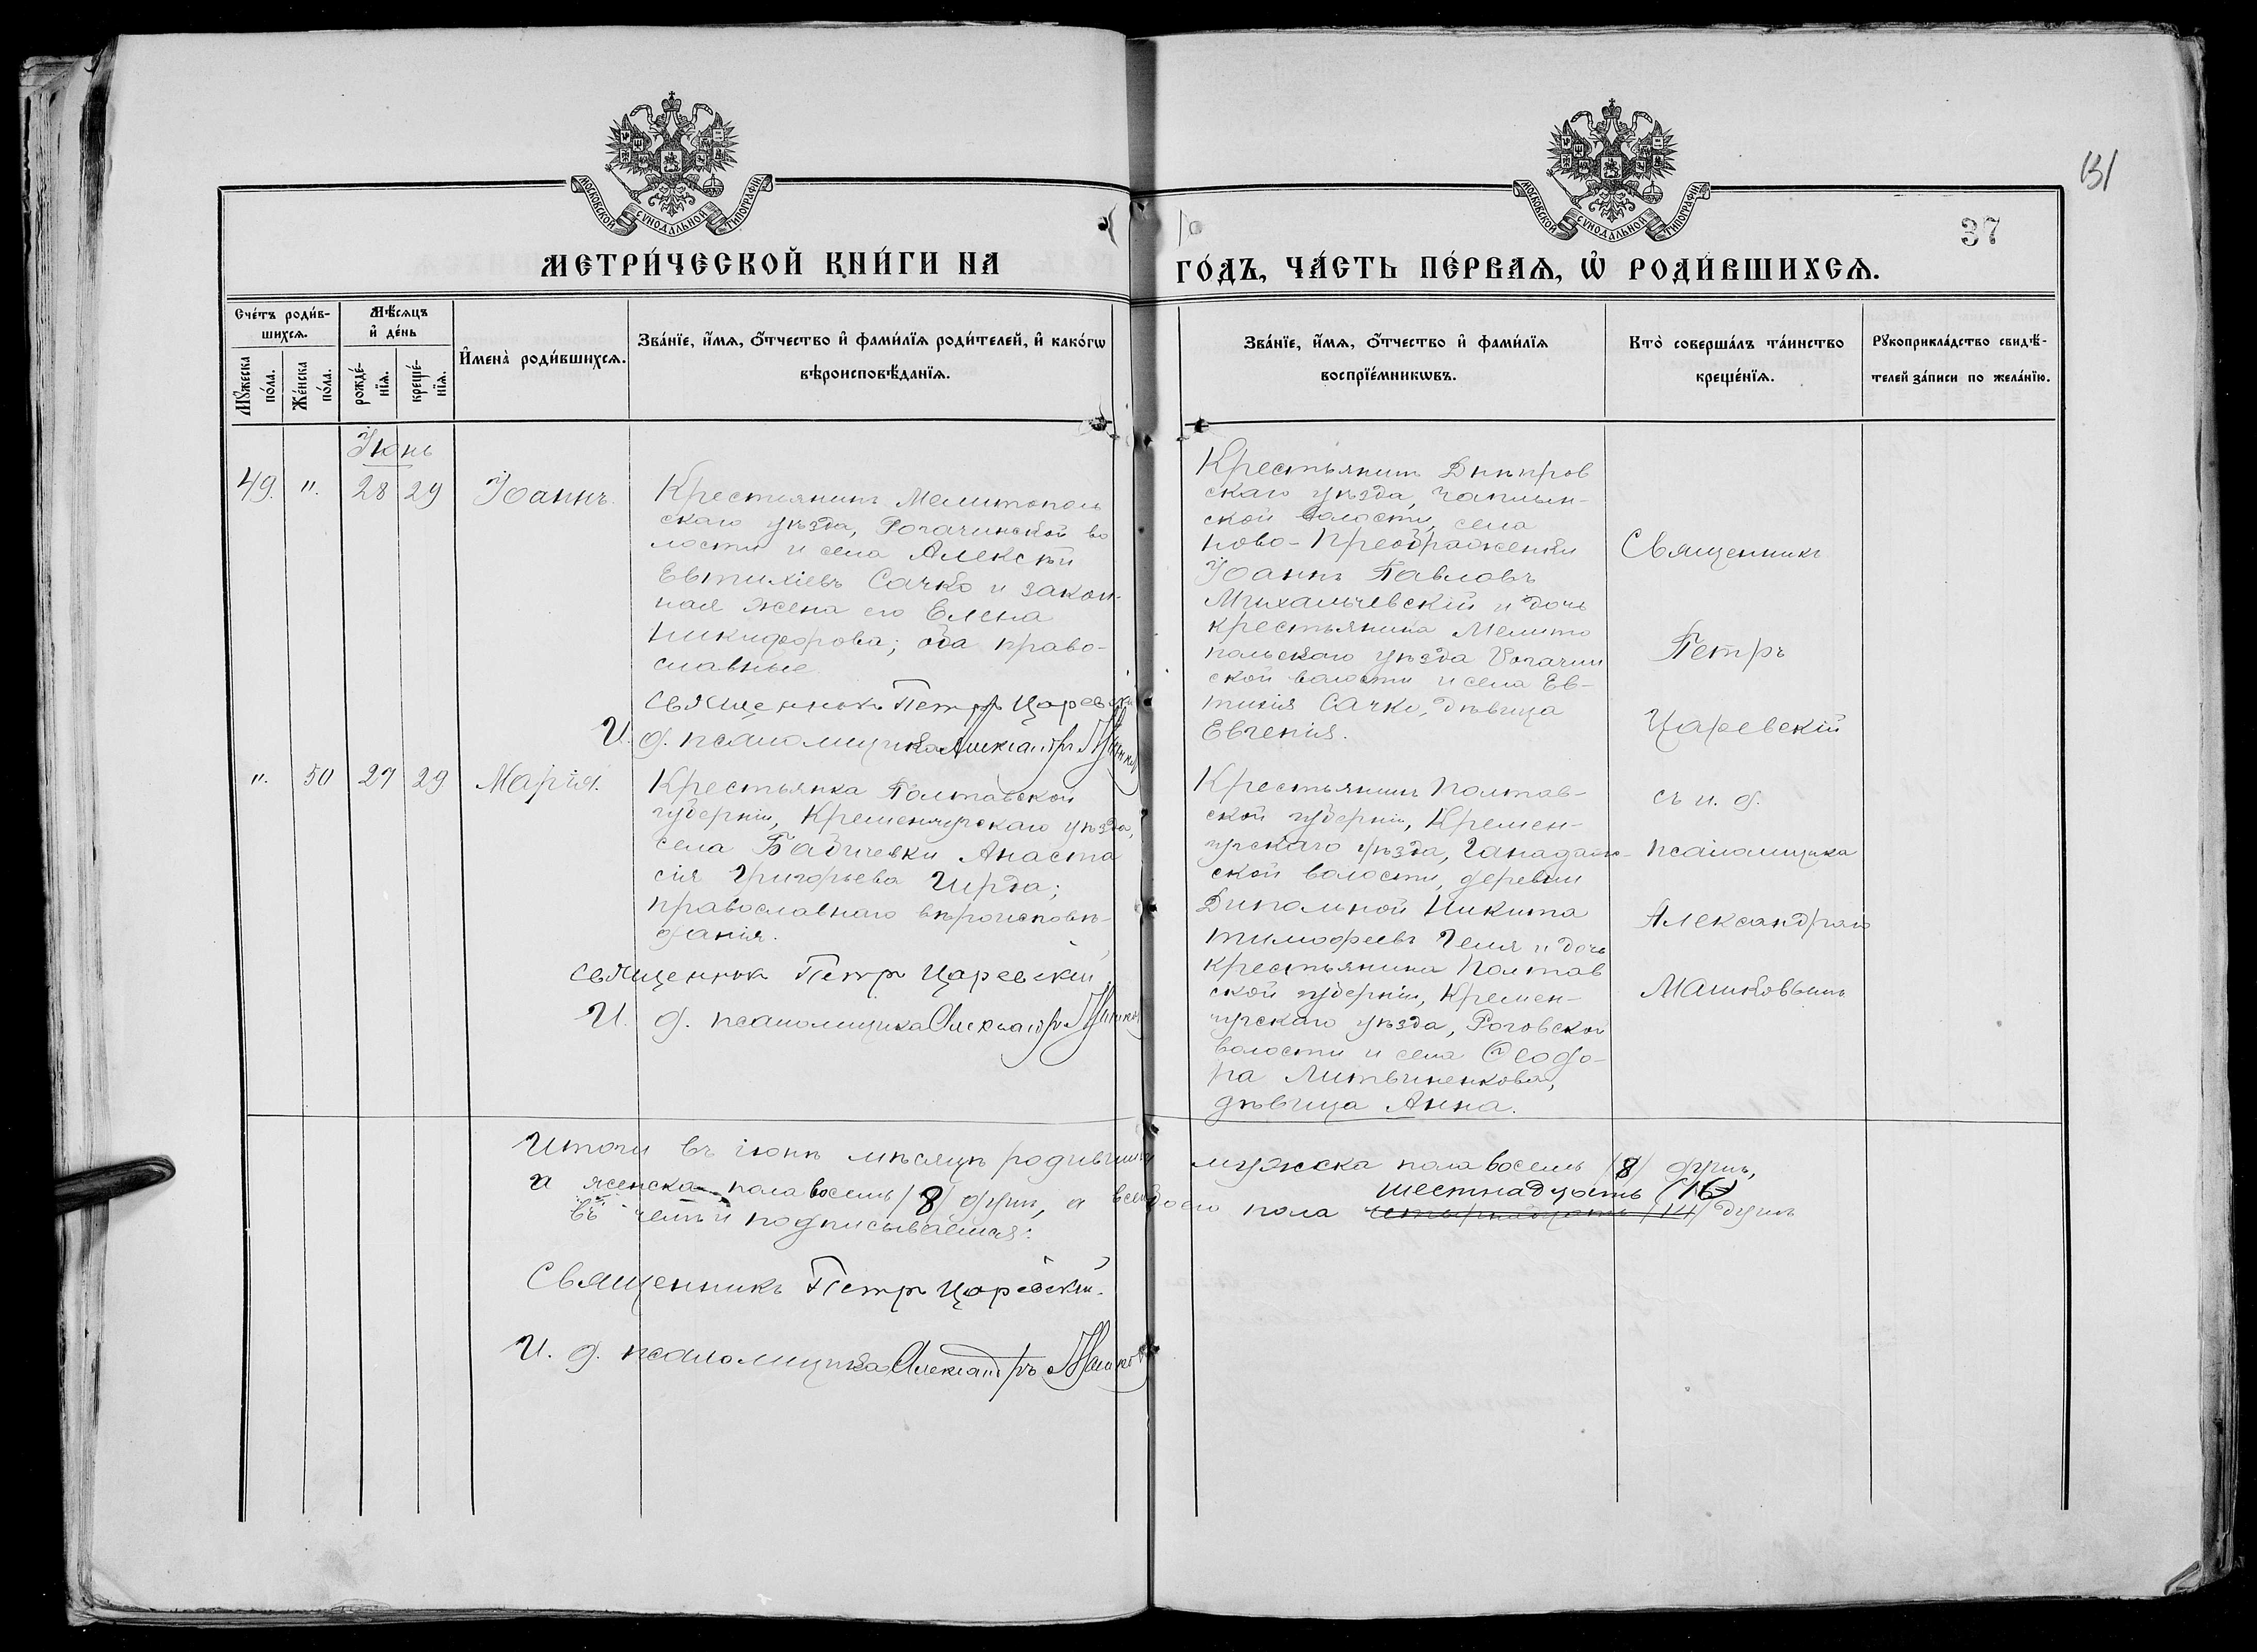 131
37
МОСКОВСКОЙ СѴНОДАЛЬНОЙ ТИПОГРАФІИ
МОСКОВСКОЙ СѴНОДАЛЬНОЙ ТИПОГРАФІИ
МЕТРИ́ЧЕСКОЙ КНИ́ГИ НА
ГО́ДЪ, ЧА́СТЬ ПЕ́РВАѦ, Ѡ҆ РОДИ́ВШИХСѦ.
Сче́тъ роди́в-
шихсѧ.
Мꙋ́жеска
по́ла.
Же́нска
по́ла.
Мѣ́сѧцъ
и҆ де́нь
рожде́-
нїѧ.
креще́-
нїѧ.
И҆мена̀ роди́вшихсѧ.
Зва́нїе, и҆́мѧ, ѻ҆́тчество и҆ фами́лїѧ роди́телей, и҆ како́гѡ
вѣроисповѣ́данїѧ.
Зва́нїе, и҆́мѧ, ѻ҆́тчество и҆ фами́лїѧ
воспрїе́мникѡвъ.
Кто̀ соверша́лъ та́инство
креще́нїѧ.
Рꙋкоприкла́дство свидѣ́-
телей за́писи по жела́нїю.
Іюнь
49.
"
28
29
Іоаннъ.
Крестьянинъ Мелитополь
скаго уѣзда, Рогачинской во
лости и села Алексѣй
Евтихіевъ Сачко и закон-
ная жена его Елена
Никифорова; оба право-
славные.
Священникъ Петръ Царевскій
И. д. псаломщика Александръ Машков
Крестьянинъ Днѣпров
скаго уѣзда, Чаплин-
ской волости, села
Ново-Преображенки
Іоаннъ Павловъ
Михальчевскій и дочь
крестьянина Мелито
польскаго уѣзда Рогачин
ской волости и села Ев-
тихія Сачко, дѣвица
Евгенія.
Священникъ
Петръ
Царевскій
съ и. д.
псаломщика
Александромъ
Машковымъ
"
50
27
29
Марія.
Крестьянка Полтавской
губерніи, Кременчугскаго уѣзда,
села Бабичевки Анаста
сія Григорьева Гирда;
православнаго вѣроисповѣ-
данія.
Священник Петр Царевскій
И. д. псаломщика Александръ Машков
Крестьянинъ Полтав-
ской губерніи, Кремен-
чугскаго уѣзда,
ской волости, деревни
Никита
Тимофеевъ и дочь
крестьянина Полтав
ской губерніи, Кремен-
чугскаго уѣзда, Роговской
волости и села Ѳеодо-
ра Литвиненкова,
дѣвица Анна.
Итого въ іюнѣ мѣсяцѣ родившихся мужска пола восемь /8/ душъ,
а женска пола восемь /8/ душъ, а всего обоего пола четырнадцать /14/ шестнадцать (16) душъ
въ чемъ и подписываемся:
Священникъ Петръ Царевскій.
И. д. псаломщика Александръ Машков